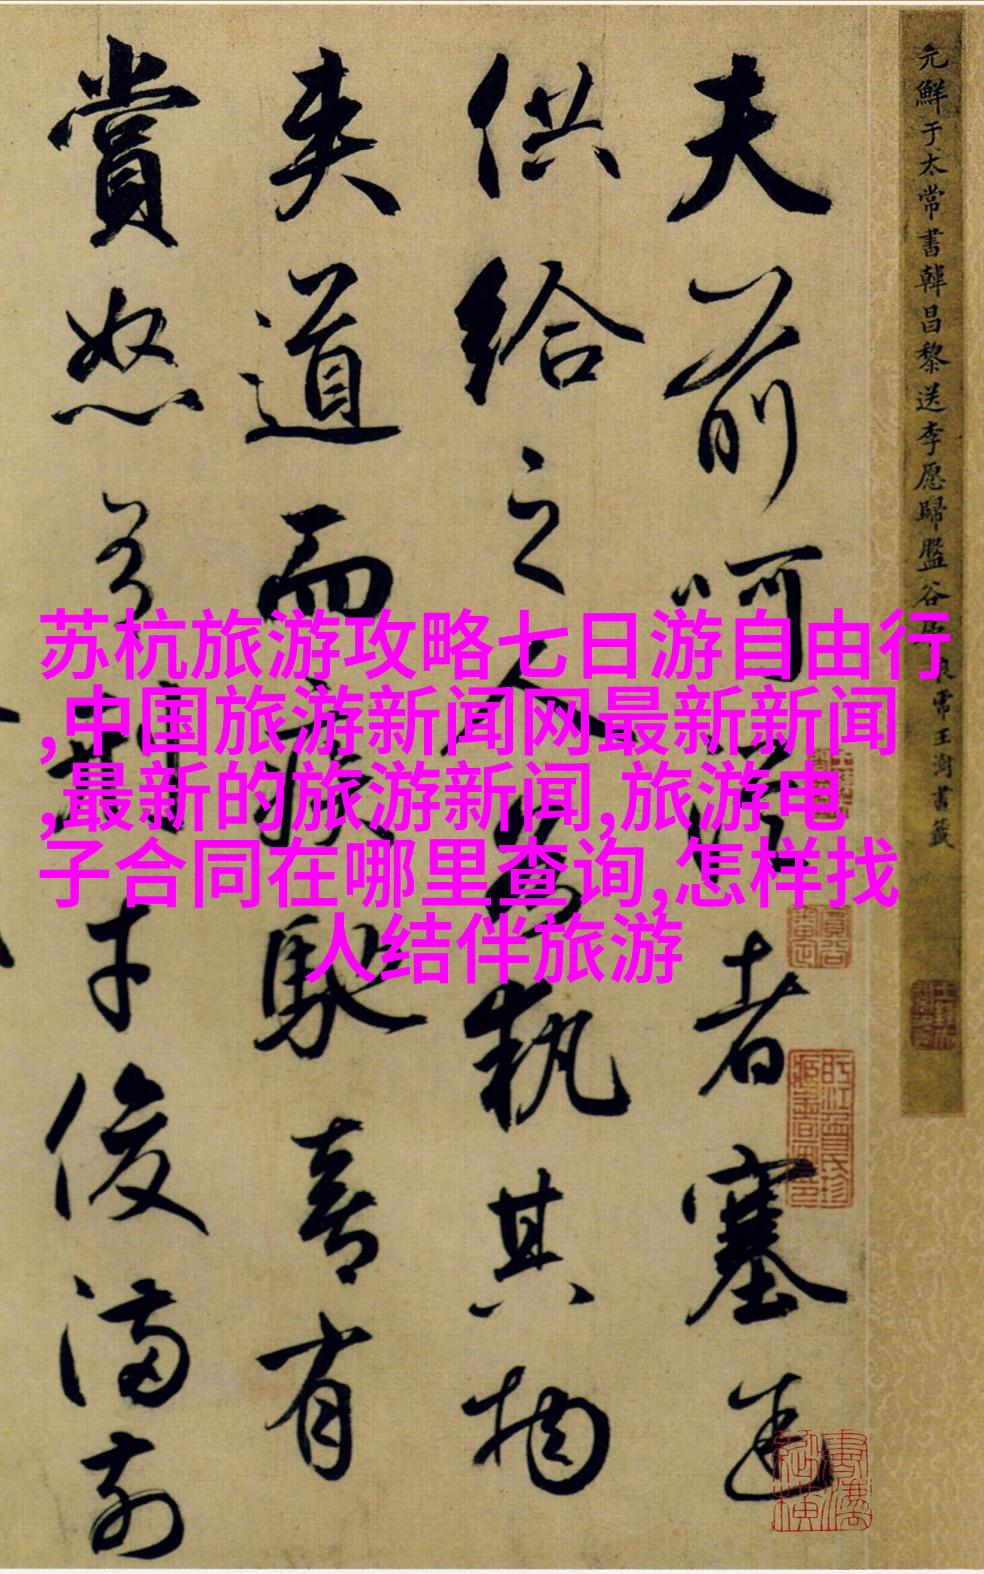 元鮮于太常書韓昌黎送李愿歸盤谷序 良常王澍書籤
夫前呵從者塞途
供給之人各執其物
夾道而疾馳喜有
賞怒有刑才俊滿前
苏杭旅游攻略七日游自由行
,中国旅游新闻网最新新闻
,最新的旅游新闻,旅游电
子合同在哪里查询,怎样找
人结伴旅游